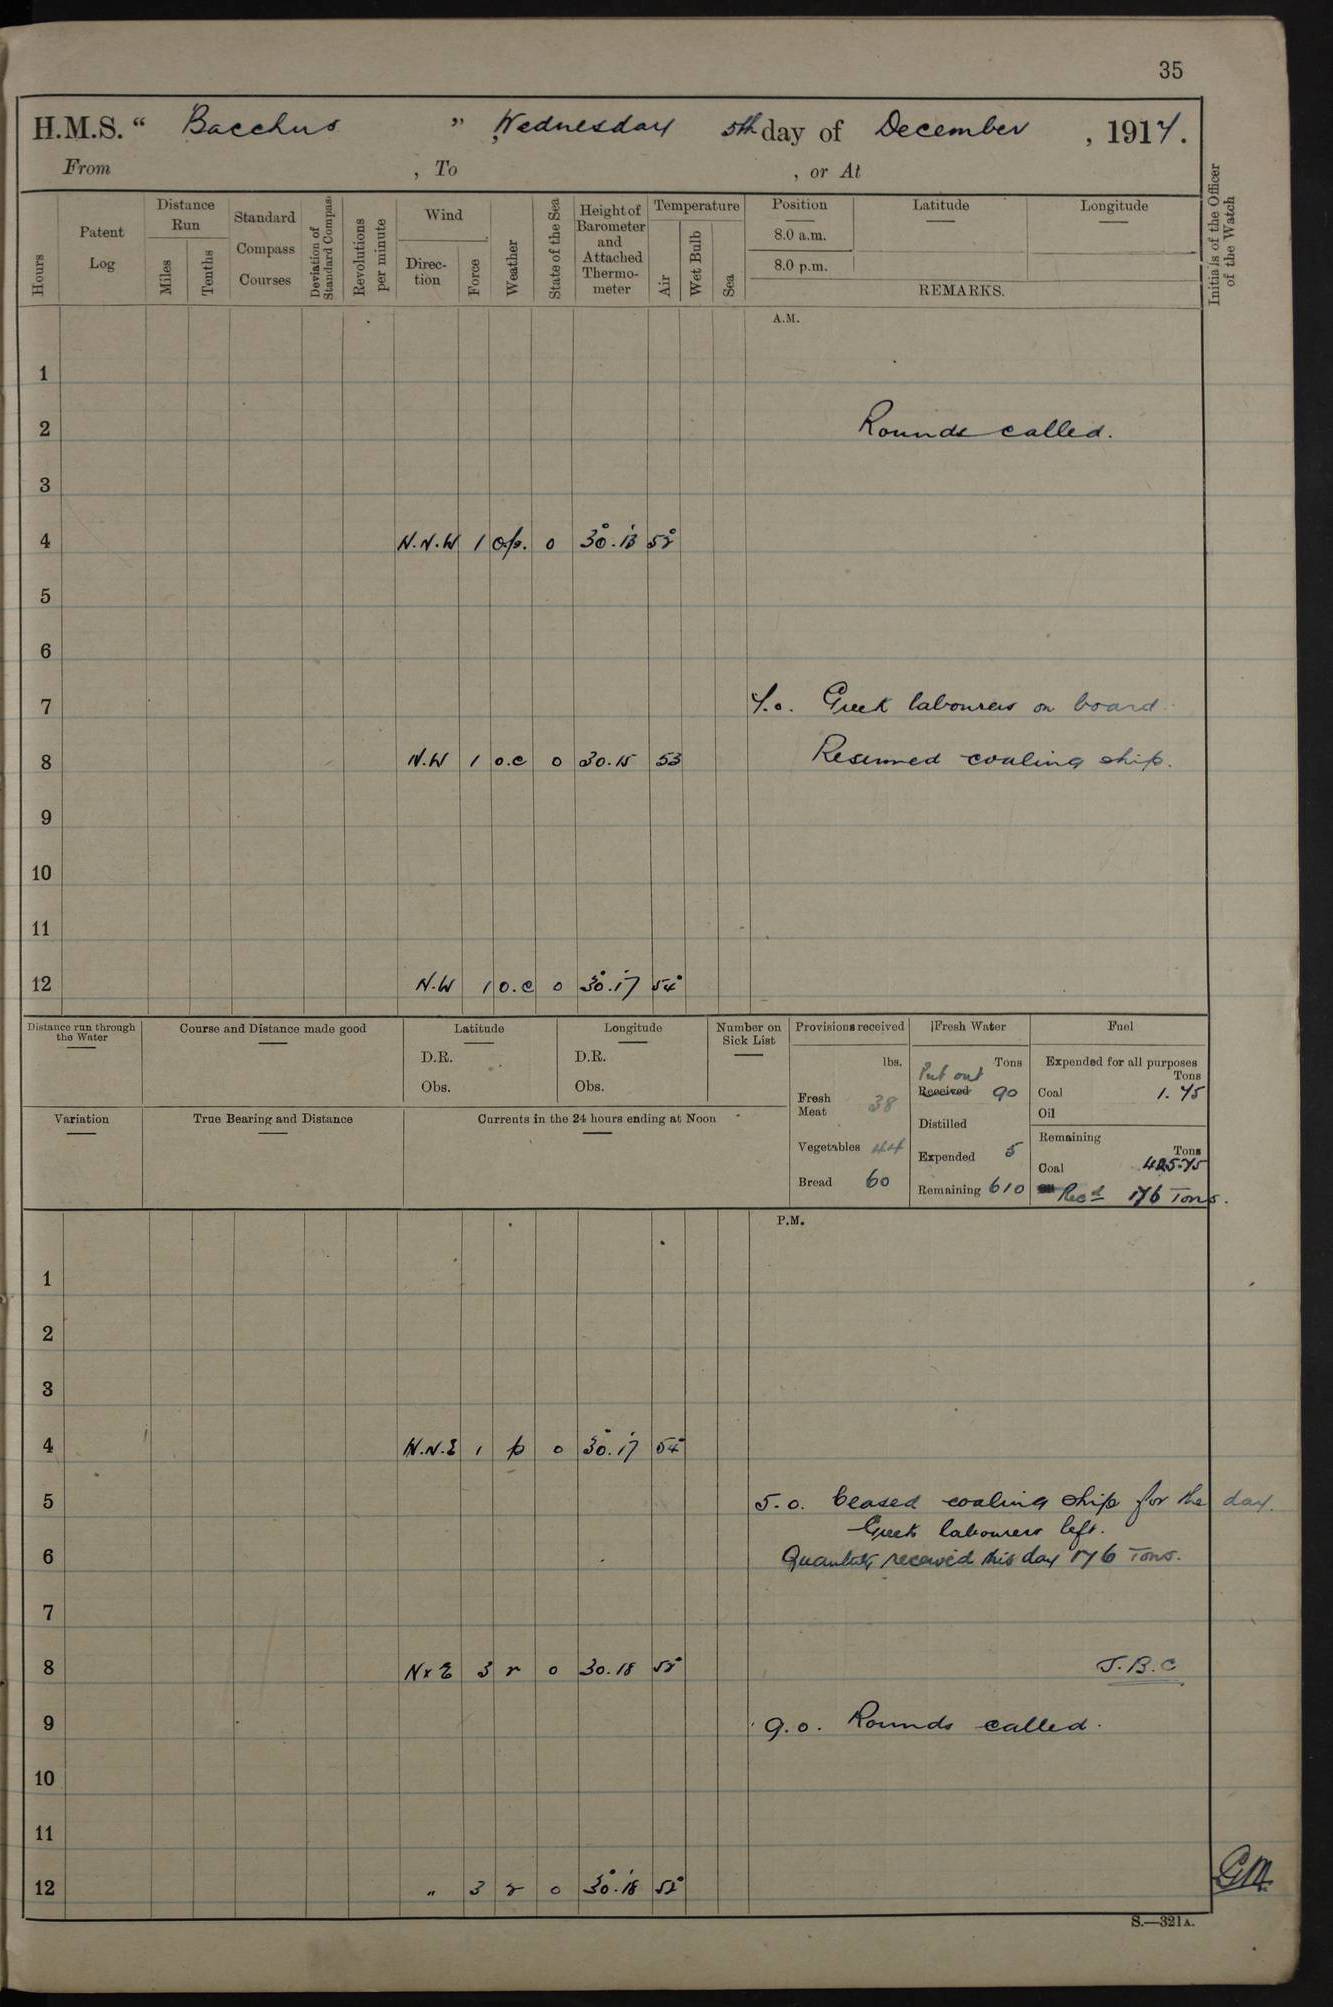 35
H.M.S. “ Bacchus ” Wednesday 5th day of December , 1917.
From , To , or At
Hours
Patent Log
Distance Run
Miles
Tenths
Standard Compass Courses
Deviation of Standard Compass
Revolutions per minute
Wind
Direction
Force
Weather
State of the Sea
Height of Barometer and Attached Thermometer
Temperature
Air
Wet Bulb
Sea
Position
8.0 a.m.
8.0 p.m.
Latitude
Longitude
REMARKS.
Initials of the Officer of the Watch
A.M.
1
2 Rounds called.
3
4 N.N.W 1 o.p. 0 30.13 52
5
6
7 7.0. Greek labourers on board.
8 N.W 1 o.c 0 30.15 53 Resumed coaling ship.
9
10
11
12 N.W 1 o.c 0 30.17 54
Distance run through the Water
Course and Distance made good
Latitude
D.R.
Obs.
Longitude
D.R.
Obs.
Number on Sick List
Provisions received
lbs.
Fresh Meat 38
Vegetables 44
Bread 60
Fresh Water
Tons
Put out
Received 90
Distilled
Expended 5
Remaining 610
Fuel
Expended for all purposes
Tons
Coal 1.75
Oil
Remaining
Tons
Coal 425.75
Recd 176 Tons.
Variation
True Bearing and Distance
Currents in the 24 hours ending at Noon
P.M.
1
2
3
4 N.N.E 1 p 0 30.17 54
5 5.0. Ceased coaling ship for the day.
Greek labourers left.
6 Quantity received this day 176 Tons.
7
8 N x E 3 r 0 30.18 52 J.B.C
9 9.0. Rounds called.
10
11
12 " 3 r 0 30.18 52 GM
S.—321A.